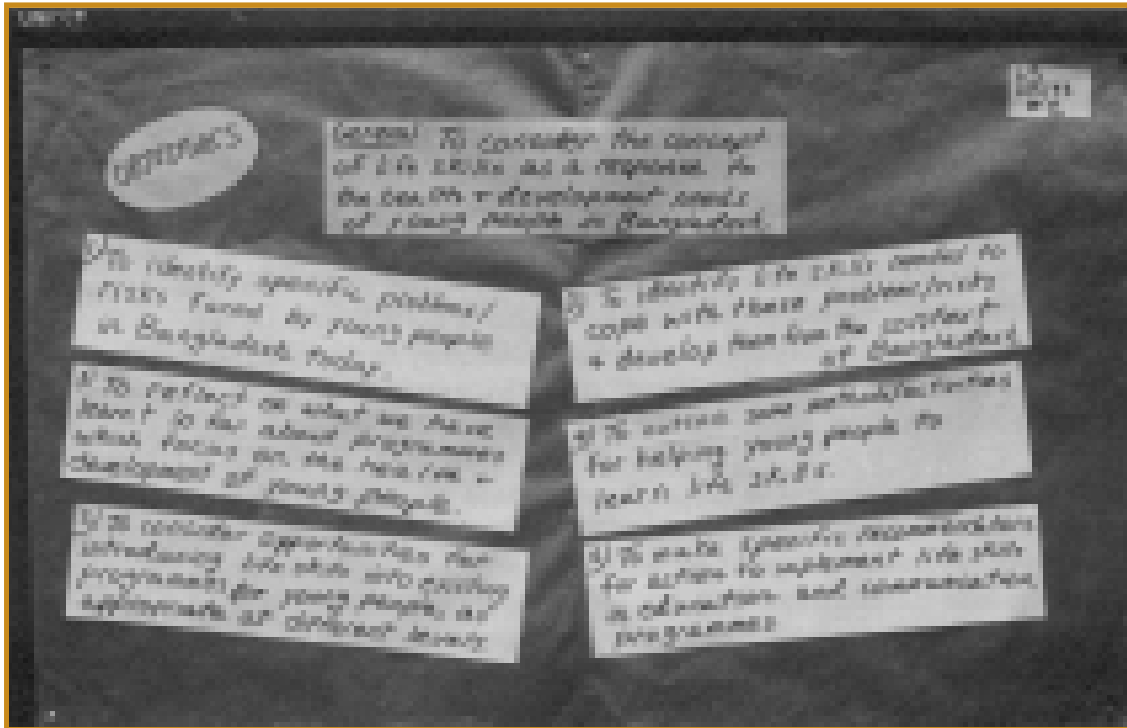 OBJECTIVES
General: To consider the concept
of life skills as a response to
the health + development needs
of young people in Bangladesh.
To identify specific problems/
risks faced by young people
in Bangladesh today.
To identify life skills needed to
cope with these problems/risks
+ develop them from the context
of Bangladesh
To reflect on what we have
learnt so far about programmes
which focus on the health +
development of young people.
To outline some methods/activities
for helping young people to
learn life skills.
To consider opportunities for
introducing life skills into existing
programmes for young people, as
appropriate at different levels
To make specific recommendations
for action to implement life skills
in education and communication
programmes